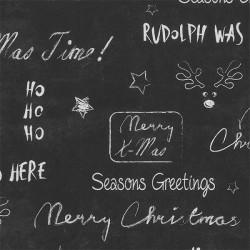 RUDOLPH WAS
mas Time!
HO
HO
HO
Merry
X-Mas
HERE
Seasons Greetings
Merry Christmas